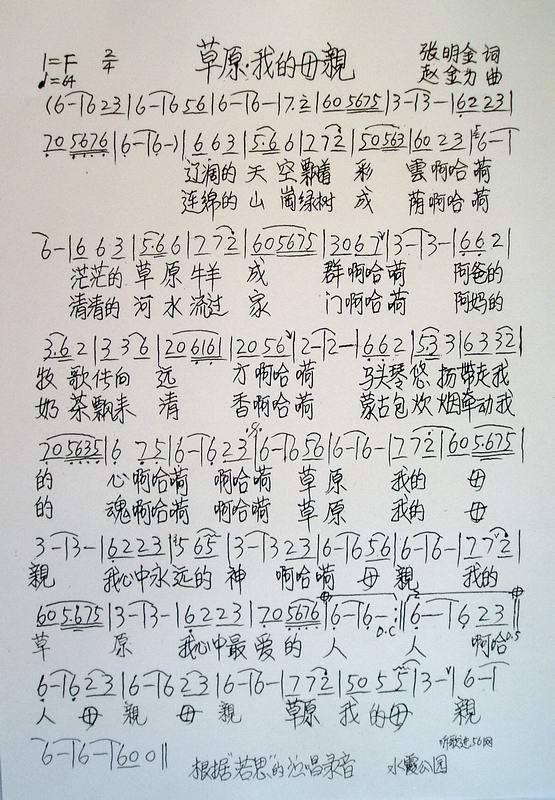 1=F 2/4 草原·我的母親 张明金 词
♩=64 赵金力 曲
(6-|6 23|6-|6 56|6-|6-|7.2|605675|3-|3-|6223|
705676|6-|6-)|663|5.66|772|50563|6023|6-|
辽阔的 天 空飘着 彩 雲啊哈嗬
连绵的 山 崗绿树 成 荫啊哈嗬
6-|663|5.66|772|605675|3067|3-|3-|662|
茫茫的 草 原 牛羊 成 群啊哈嗬 阿爸的
清清的 河 水 流过 家 门啊哈嗬 阿妈的
3.62|336|206161|2056|2-|2-|662|533|6332|
牧 歌传向 远 方啊哈嗬 马头琴 悠 扬带走我
奶 茶飘来 清 香啊哈嗬 蒙古包 炊 烟牵动我
705635|6 75|6-|6 23|6-|6 56|6-|6-|772|605675|
的 心啊哈嗬 啊哈嗬 草 原 我的 母
的 魂啊哈嗬 啊哈嗬 草 原 我的 母
3-|3-|6223|5 65|3-|3 23|6-|6 56|6-|6-|772|
親 我心中永远的 神 啊哈嗬 母 親 我的
605675|3-|3-|6223|705676|6-|6-:||6-|6 23||
草 原 我心中最 爱的 人 D.C 人 啊哈 D.S
6-|6 23|6-|6 23|6-|6-|772|505|3-|6-|
人 母 親 母 親 草原 我 的母 親
6-|6-|600||
听歌迷56网
根据"若思"的演唱录音 水霞公园